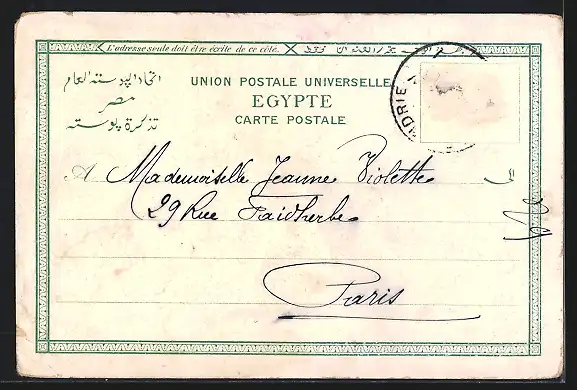 L'adresse seule doit être écrite de ce côté.
UNION POSTALE UNIVERSELLE
EGYPTE
CARTE POSTALE
اتحاد البوستة العام
مصر
تذكرة بوسته
DRIE
A Mademoiselle Jeanne Violette
الى
29 Rue Faidherbe
Paris